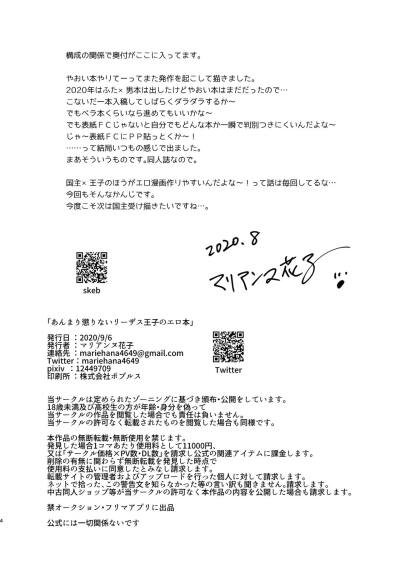 構成の関係で奥付がここに入ってます。
やおい本やりてーってまた発作を起こして描きました。
2020年はふた×男本は出したけどやおい本はまだだったので…
こないだ一本入稿してしばらくダラダラするか～
でもペラ本くらいなら進めてもいいかな～
でも表紙ＦＣじゃないと自分でもどんな本か一瞬で判別つきにくいんだよな～
じゃ～表紙ＦＣにＰＰ貼っとくか～！
……って結局いつもの感じで出ました。
まあそういうものです。同人誌なので。
国主×王子のほうがエロ漫画作りやすいんだよな～！って話は毎回してるな…
今回もそんなかんじです。
今度こそ次は国主受け描きたいですね…。
2020.8
マリアンヌ花子
skeb
「あんまり懲りないリーザス王子のエロ本」
発行日：2020/9/6
発行者：マリアンヌ花子
連絡先：mariehana4649@gmail.com
Twitter：mariehana4649
pixiv ：12449709
印刷所：株式会社ポプルス
Twitter
当サークルは定められたゾーニングに基づき頒布・公開をしています。
18歳未満及び高校生の方が年齢・身分を偽って
当サークルの作品を閲覧した場合でも責任は負いません。
当サークルの許可なく転載されたものを閲覧した場合も同様です。
本作品の無断転載・無断使用を禁じます。
発見した場合1コマあたり使用料として11000円、
又は「サークル価格×PV数・DL数」を請求し公式の関連アイテムに課金します。
削除の有無に関わらず無断転載を発見した時点で
使用料の支払いに同意したとみなし請求します。
転載サイトの管理者およびアップロードを行った個人に対して請求します。
ネットで拾った、この警告文を知らなかった等の言い訳も聞きません。請求します。
中古同人ショップ等が当サークルの許可なく本作品の内容を公開した場合も請求します。
禁オークション・フリマアプリに出品
公式には一切関係ないです
4